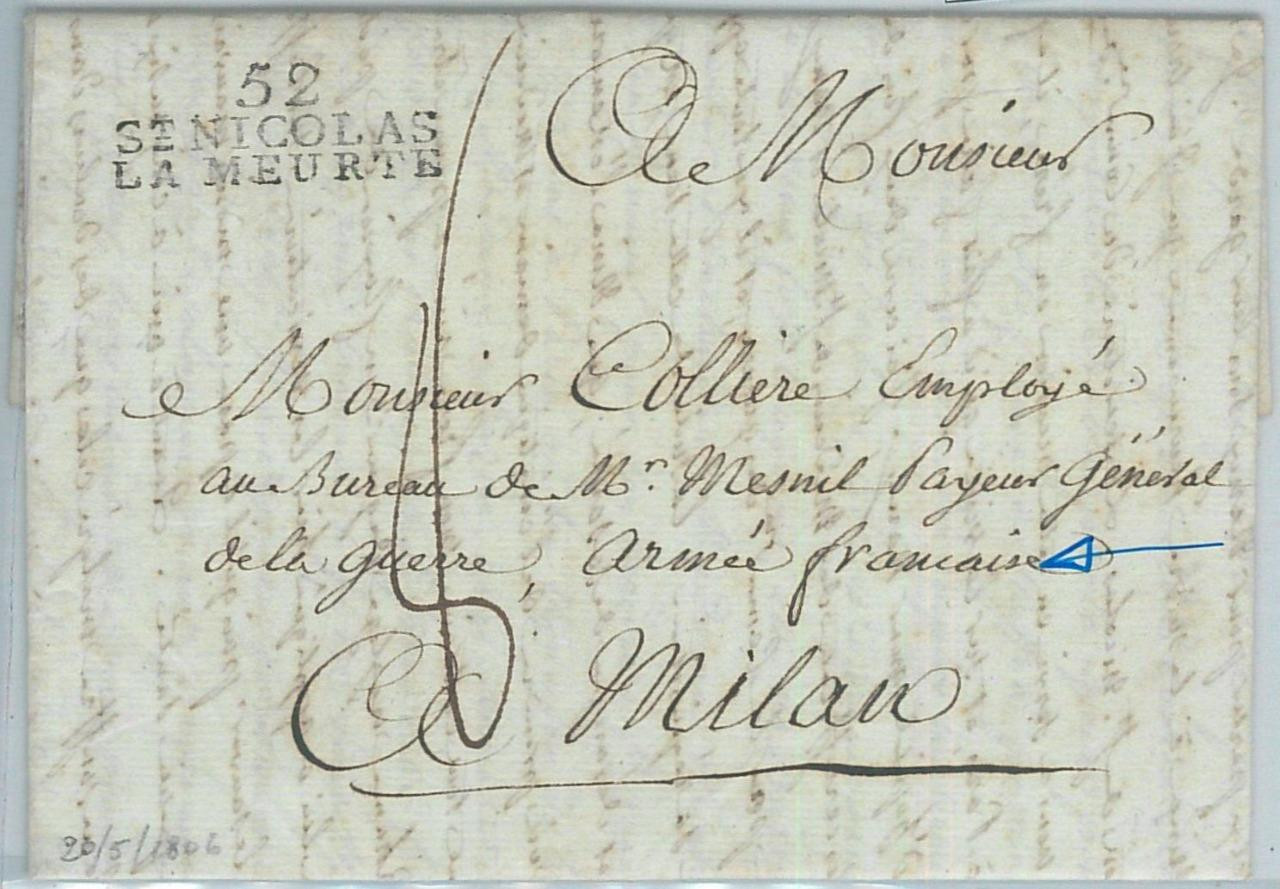 52
ST NICOLAS
LA MEURTE
A Monsieur
Monsieur Colliere Employé
au Bureau de Mr. Mesnil Payeur Général
de la guerre, Armée francaise
A Milan
20/5/1806